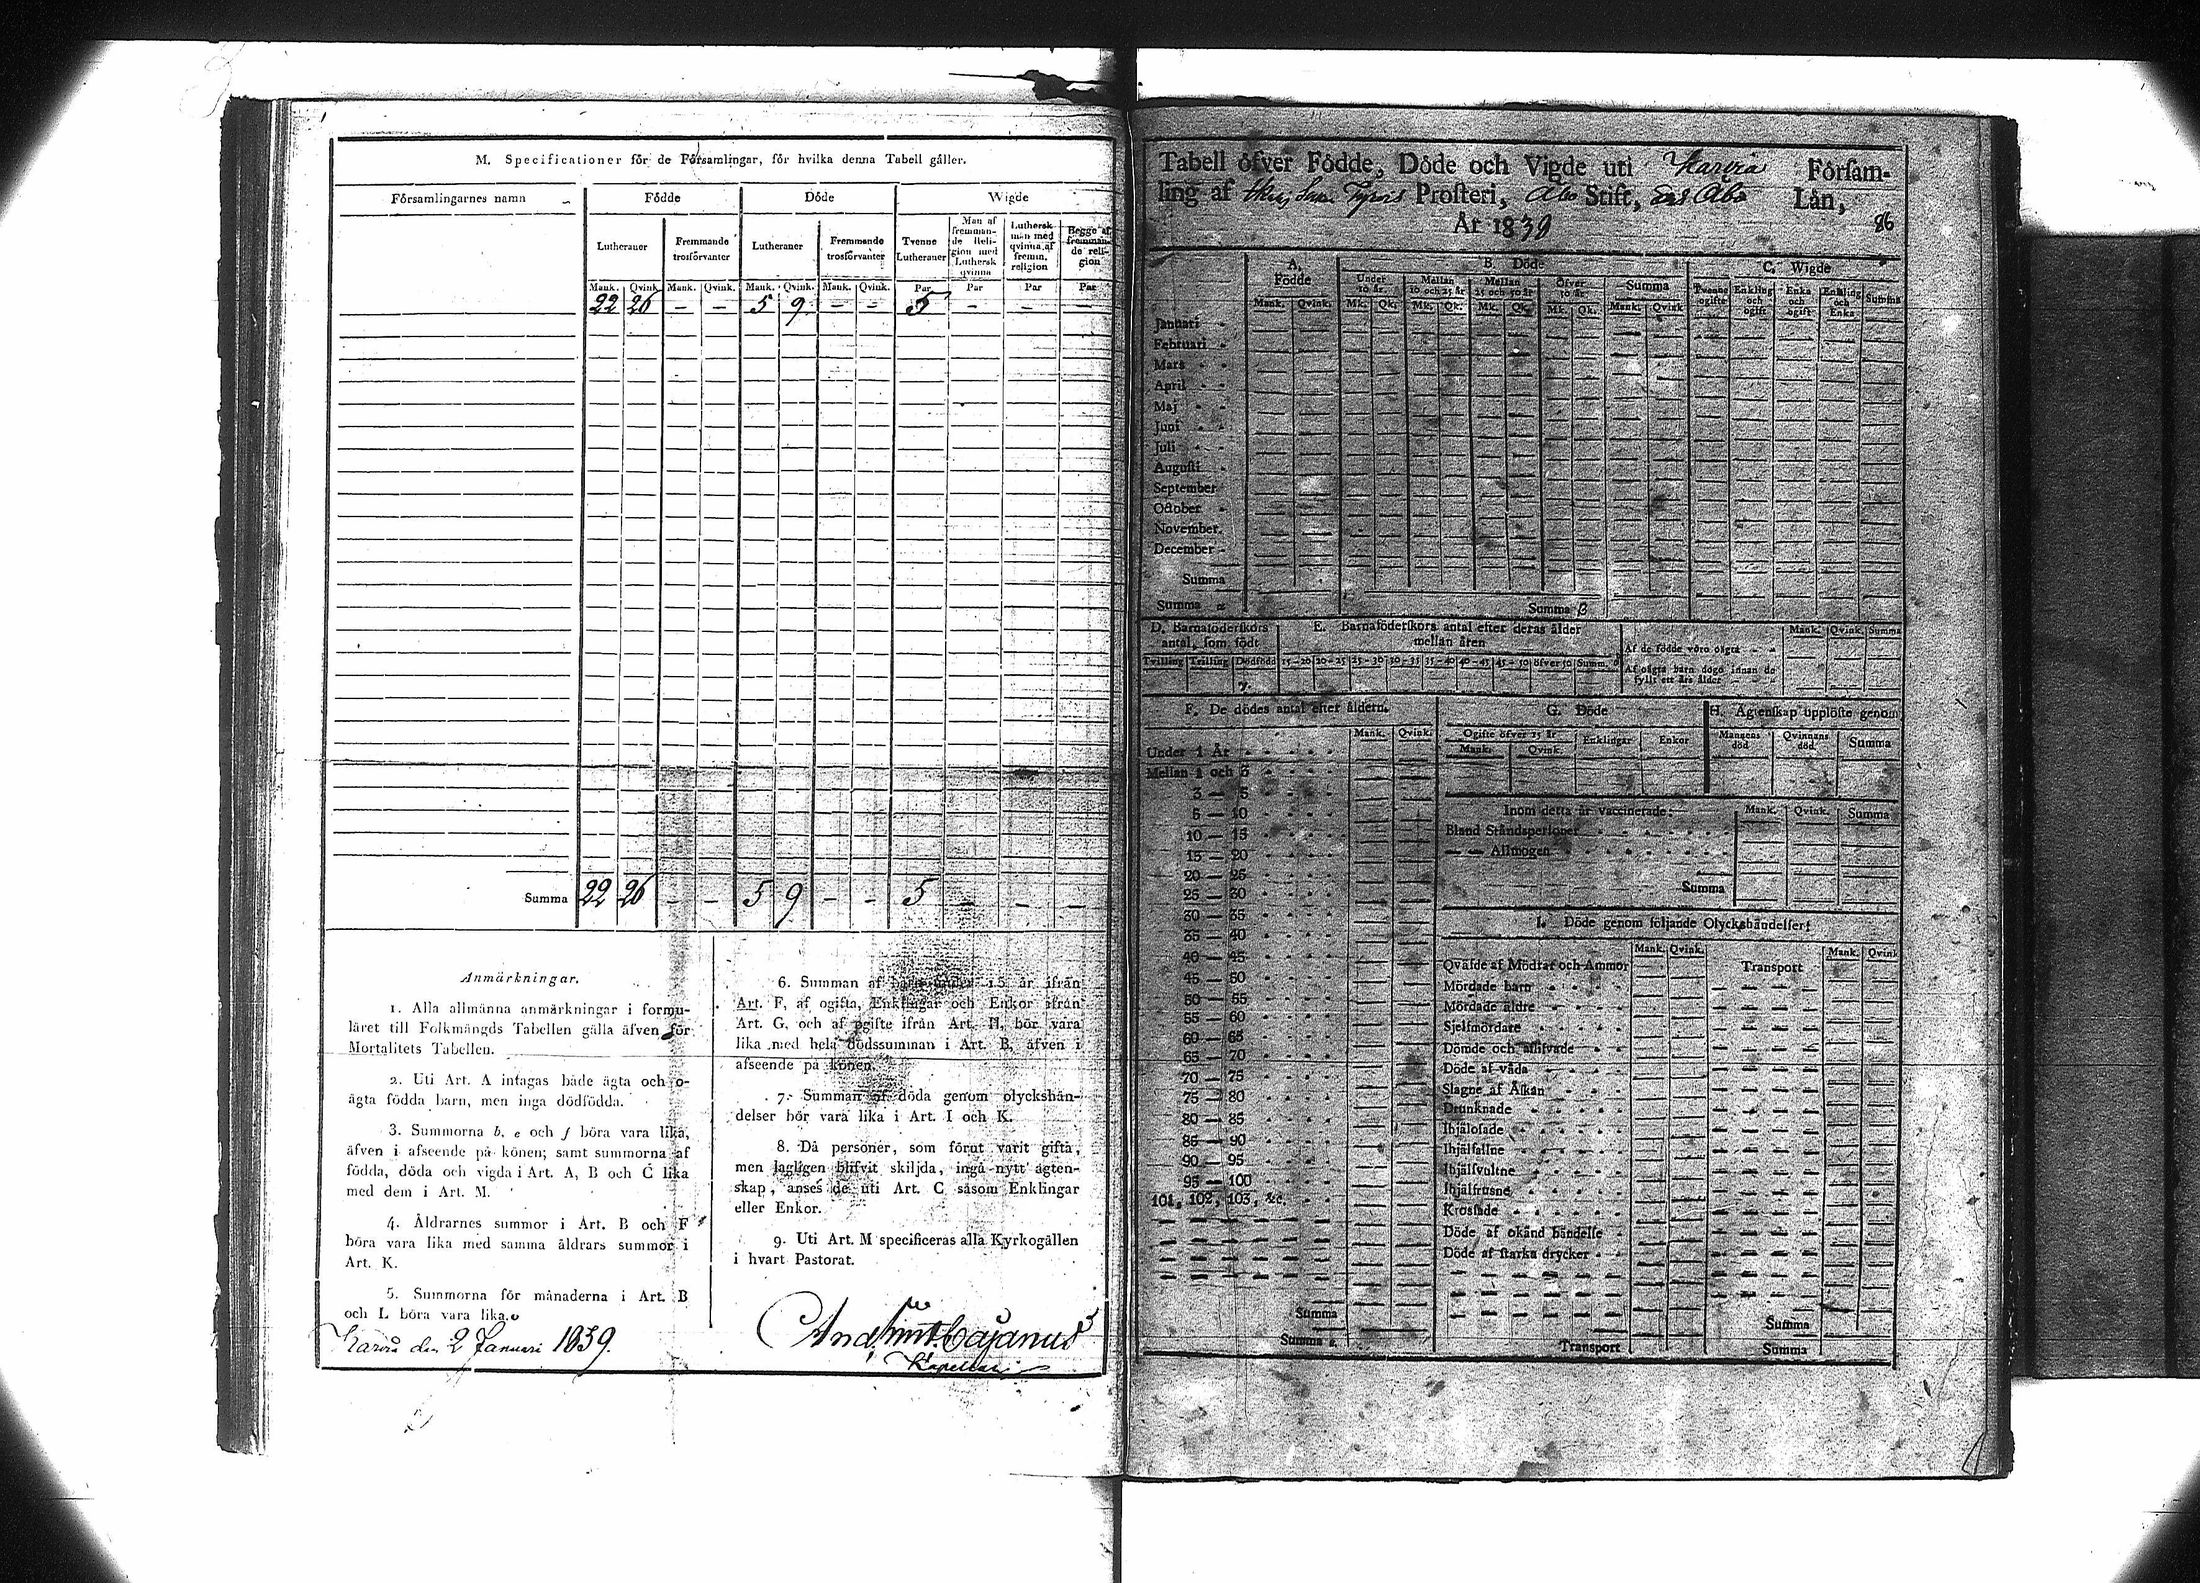 M. Specificationer för de Församlingar, för hvilka denna Tabell gäller.
Församlingarnes namn
Födde
Döde
Wigde
Lutheraner
Fremmande trosförvanter
Lutheraner
Fremmande trosförvanter
Tvenne Lutheraner
Man af fremmande Religion med Luthersk qvinna
Luthersk man med qvinna af fremm. religion
Begge af fremmande religion
Mank. Qvink. Mank. Qvink. Mank. Qvink. Mank. Qvink. Par Par Par Par
22 26 — — 5 9 — — 5 — —
Summa 22 26 — — 5 9 — — 5 — — —
Anmärkningar.
1. Alla allmänna anmärkningar i formu-
läret till Folkmängds Tabellen gälla äfven för
Mortalitets Tabellen.
2. Uti Art. A intagas både ägta och o-
ägta födda barn, men inga dödfödda.
3. Summorna b, e och f böra vara lika,
äfven i afseende på könen; samt summorna af
födda, döda och vigda i Art. A, B och C lika
med dem i Art. M.
4. Åldrarnes summor i Art. B och F
böra vara lika med samma åldrars summor i
Art. K.
5. Summorna för månaderna i Art. B
och L böra vara lika.
6. Summan af barn under 15 år ifrån
Art. F, af ogifta, Enklingar och Enkor ifrån
Art. G, och af gifte ifrån Art. H, bör vara
lika med hela dödssumman i Art. B, äfven i
afseende på könen.
7. Summan af döda genom olyckshän-
delser bör vara lika i Art. I och K.
8. Då personer, som förut varit gifta,
men lagligen blifvit skiljda, ingå nytt ägten-
skap, anses de uti Art. C såsom Enklingar
eller Enkor.
9. Uti Art. M specificeras alla Kyrkogällen
i hvart Pastorat.
Karvia den 2 Januari 1839.
Cajanus
Kapellan
Tabell öfver Födde, Döde och Vigde uti Karvia Församling
af Prosteri, Åbo Stift, Åbo Län,
År 1839
86
A. Födde
B. Döde
C. Wigde
Under 10 år.
Mellan 10 och 25 år
Mellan 25 och 50 år
Öfver 50 år.
Summa
Tvenne ogifte
Enkling och ogift
Enka och ogift
Enkling och Enka
Summa
Mank. Qvink. Mk. Qk. Mk. Qk. Mk. Qk. Mk. Qk. Mank. Qvink
Januari
Februari
Mars
April
Maj
Juni
Juli
Augusti
September
October
November
December
Summa
Summa a
Summa β
D. Barnaföderskors antal, som födt
Tvilling Trilling Dödfödd
E. Barnaföderskors antal efter deras ålder mellan åren
15—20 20—25 25—30 30—35 35—40 40—45 45—50 öfver 50 Summ.
Mank. Qvink. Summa
Af de födde voro oägta
Af oägta barn dogo innan de fyllt ett års ålder
F. De dödes antal efter åldern.
Mank. Qvink.
Under 1 År
Mellan 1 och 3
3—5
5—10
10—15
15—20
20—25
25—30
30—35
35—40
40—45
45—50
50—55
55—60
60—65
65—70
70—75
75—80
80—85
85—90
90—95
95—100
101, 102, 103, &c.
Summa
Summa
G. Döde
Ogifte öfver 15 år
Mank. Qvink.
Enklingar
Enkor
H. Ägtenskap upplöste genom
Mannens död
Qvinnans död
Summa
Inom detta år vaccinerade:
Mank. Qvink. Summa
Bland Ståndspersoner
— — Allmogen
Summa
I. Döde genom följande Olyckshändelser:
Mank. Qvink.
Mank. Qvink
Qväfde af Mödrar och Ammor
Transport
Mördade barn
Mördade äldre
Sjelfmördare
Dömde och aflifvade
Döde af våda
Slagne af Åskan
Drunknade
Ihjälosade
Ihjälfallne
Ihjälsvultne
Ihjälfrusne
Krossade
Döde af okänd händelse
Döde af starka drycker
Summa
Transport
Summa